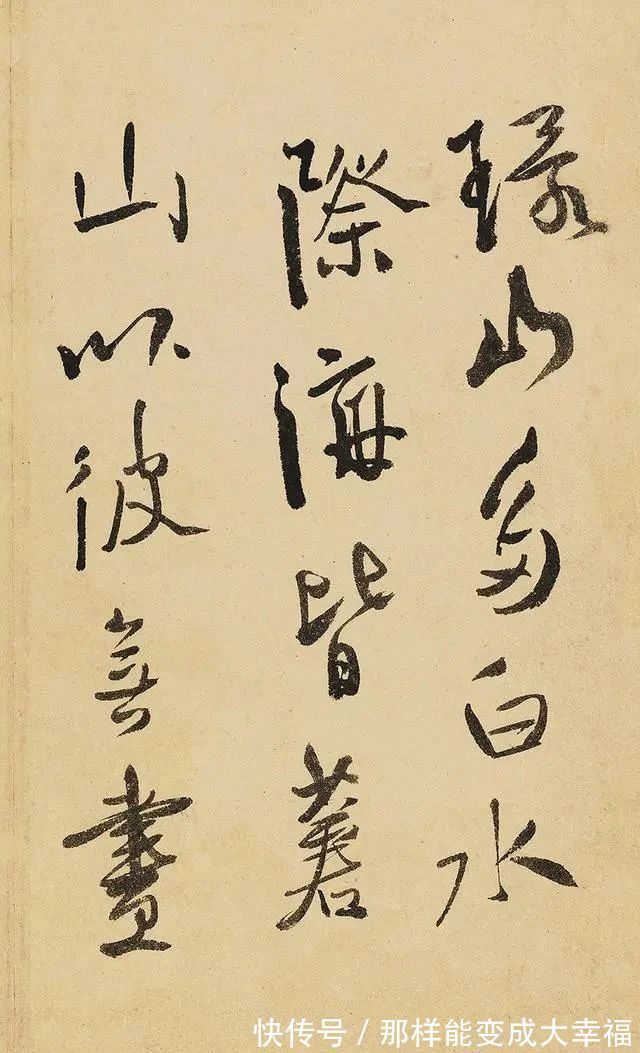 環山多白水
際海皆蒼
山以彼無盡
快传号/那样能变成大幸福